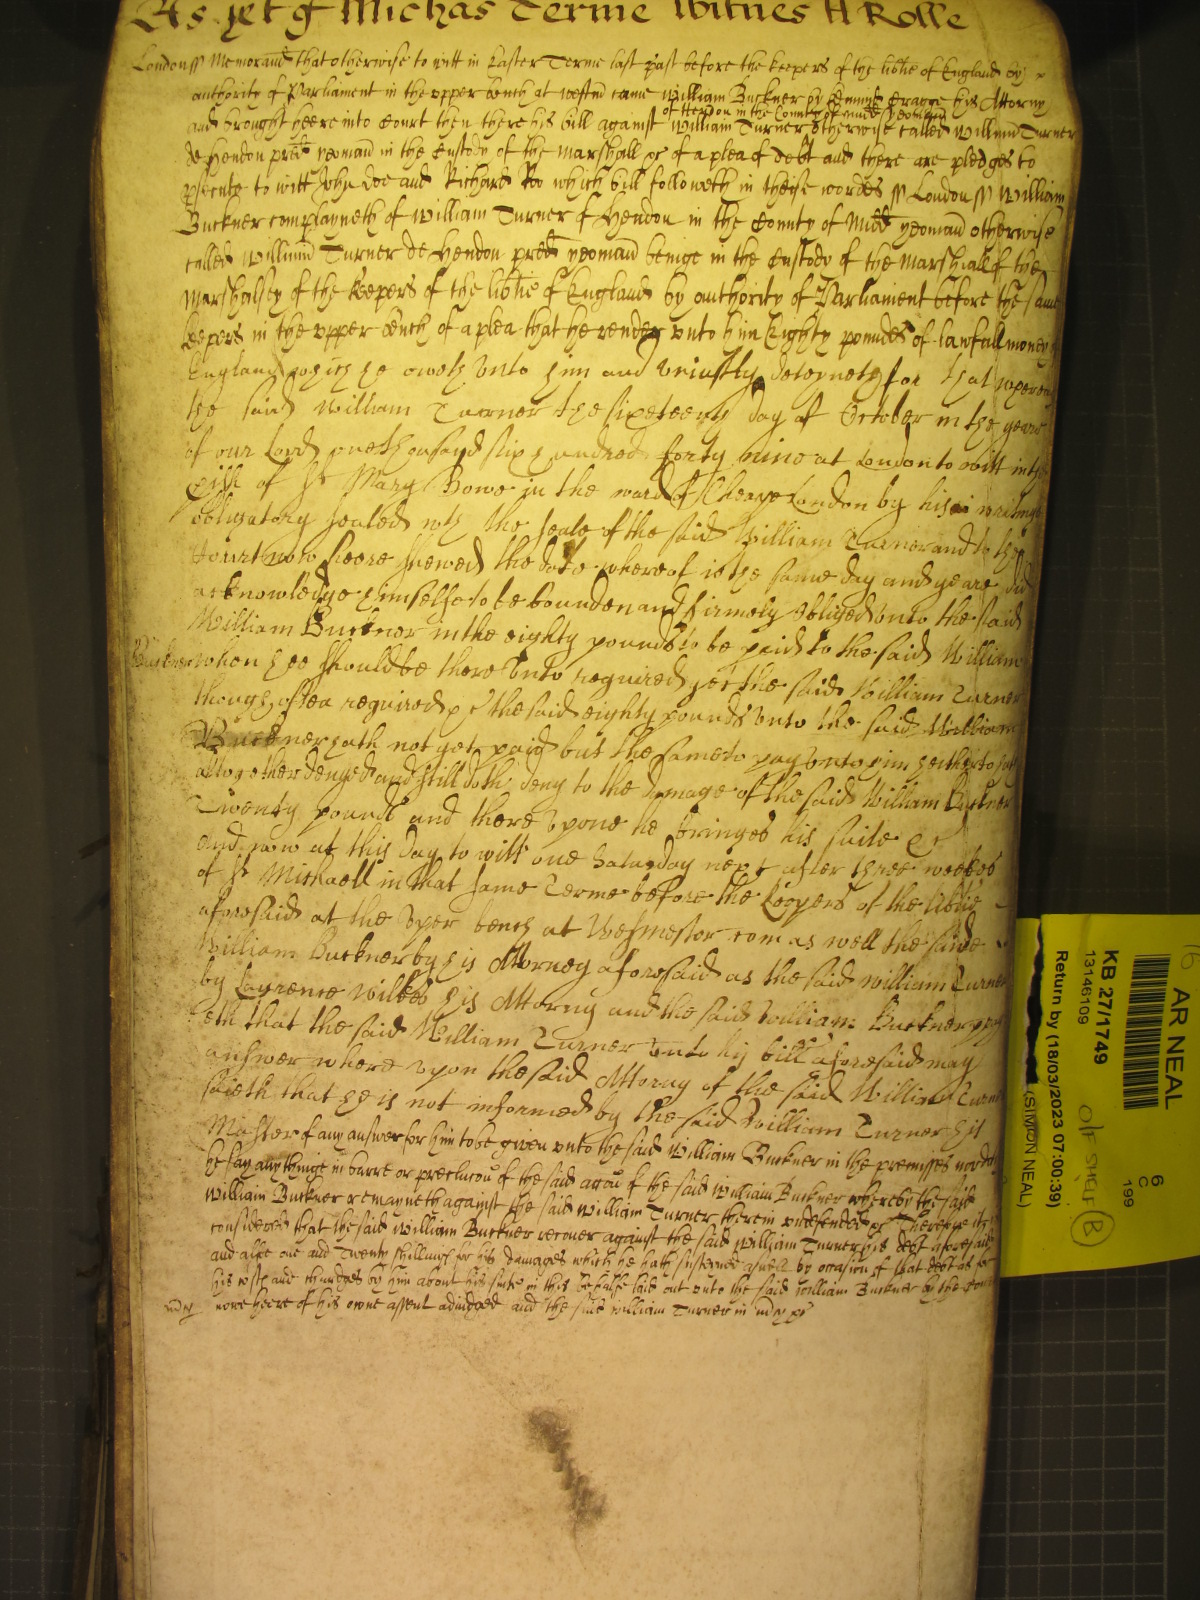 As yet of Michas Terme Witnes H Rolle
London ss Memorand that otherwise to witt in Easter Terme last past before the keepers of the libtie of England by
authority of Parliament in the upper bench at westm came William Buckner by Cragge his Attorny
of Hendon in the County of Midd yeoman
and brought heere into Court then there his bill against William Turner otherwise called Willmu Turner
de Hendon pred yeoman in the Custody of the Marshall &c of a plea of debt and there are pledges to
psecute to witt John Doe and Richard Roo which bill followeth in theise wordes ss London ss William
Buckner complayneth of William Turner of Hendon in the County of Midd yeoman otherwise
called Willmu Turner de Hendon pred yeoman beinge in the Custody of the Marshall of the
Marshalsey of the Keepers of the libtie of England by authority of Parliament before the same
keepers in the upper bench of a plea that he render unto him Eighty poundes of lawfull money of
England which he oweth unto him and uniustly deteyneth for that whereas
the said William Turner the sixteenth day of October in the yeare
of our Lord one thousand six hundred forty nine at London to witt in the
pish of St Mary Bowe in the ward of Cheape London by his writinge
obligatory sealed wth the seale of the said William Turner and to the
Court now heere shewed the date whereof is the same day and yeare did
acknowledge himselfe to be bounden and firmely obliged unto the said
William Buckner in the eighty pounds to be paid to the said William
Buckner when hee should be there unto required yet the said William Turner
though often required &c the said eighty pounds unto the said William
Buckner hath not yet paid but the same to pay unto him hitherto hath
altogether denyed and still doth deny to the damage of the said William Buckner
Twenty pounds and there upone he bringes his suite &c
And now at this day to witt one Saturday next after three weekes
of St Michaell in that same Terme before the Keepers of the libtie
aforesaid at the Uper bench at Wesmester com as well the saide
William Buckner by his Attorney aforesaid as the said william Turner
by Laurence Wilkes his Attorny and the said William Buckner pray
eth that the said William Turner unto his bill aforesaid may
answer where upon the said Attorny of the said William Turner
saieth that he is not informed by the said William Turner his
Master of any answer for him to be given unto the said William Buckner in the premisses nor doth
he say any thinge in barre or preclucon of the said accon of the said William Buckner whereby the said
William Buckner remayneth against the said William Turner therein undefended &c Therefore it is
considered that the said William Buckner recover against the said William Turner his debt aforesaid
and alsoe one and Twenty shillings for his damages which he hath susteined aswell by occasion of that debt as for
his costs and chardges by him about his suite in this behalfe laid out unto the said William Buckner by the Court
mcy nowe heere of his owne assent adiudged and the said William Turner in mcy &c
AR NEAL
KB 27/1749
13146109
Return by (18/03/2023 07:00:39)
(SIMON NEAL)
6
C
199
O/F SHELF
B
16